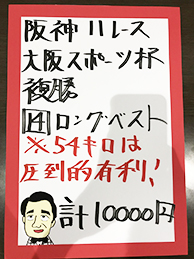 阪神11レース
大阪スポーツ杯
複勝
14ロングベスト
※54キロは
圧倒的有利!
計10000円